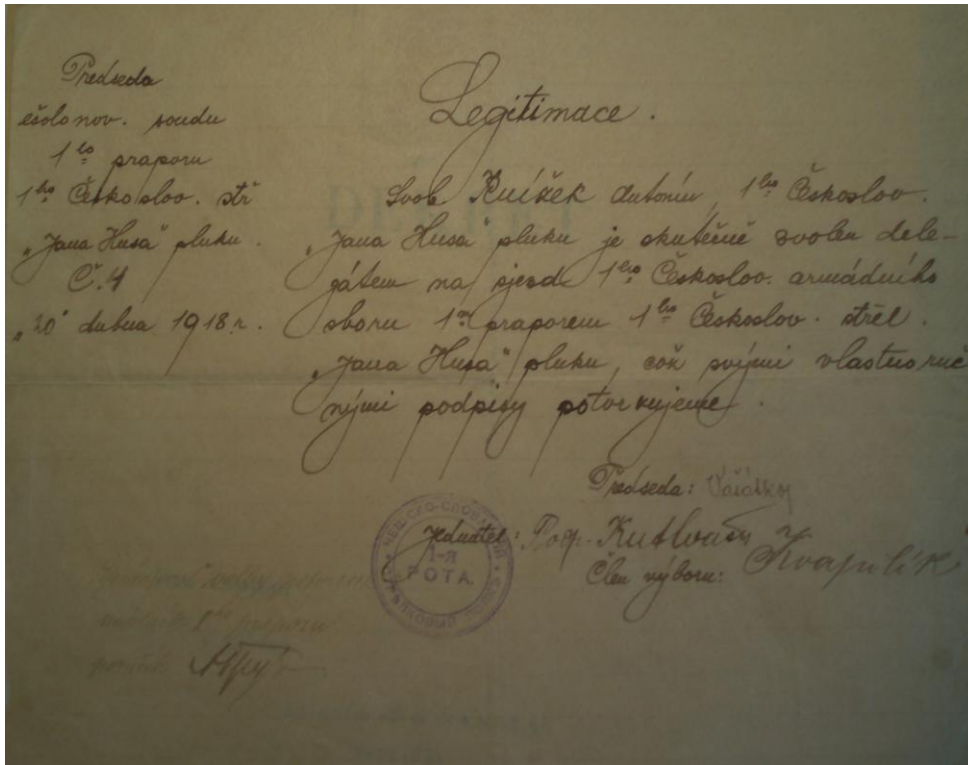 Předseda
ešolonov. soudu
1ho praporu
1ho Českoslov. stř
„Jana Husa“ pluku.
Č. 4
„20“ dubna 1918 r.
Legitimace.
Svob Knížek Antonín, 1ho Českoslov.
„Jana Husa“ pluku je skutečně zvolen dele-
gátem na sjezd 1ho Českoslov. armádního
sboru 1m praporem 1ho Českoslov. střel.
„Jana Husa“ pluku, což svými vlastnoruč
nými podpisy potvrzujeme.
Předseda:
Jednatel:
Člen výboru: Kvapilík
1-я
РОТА.